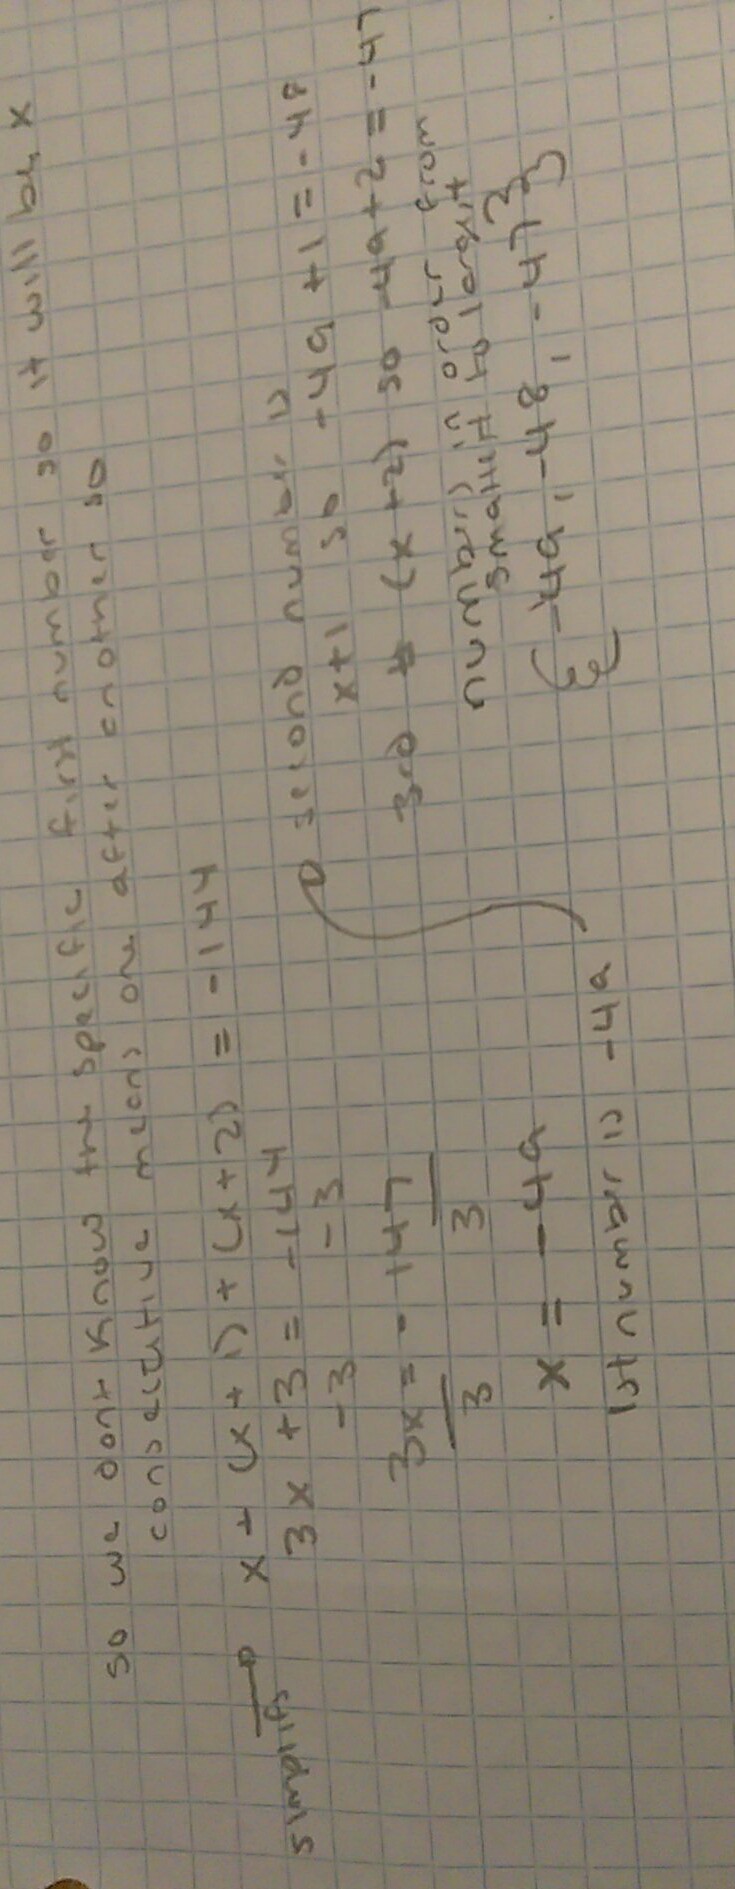 so we dont know the specific first number so it will be x
consecutive means one after another so
x + (x + 1) + (x + 2) = -144
simplify 3x + 3 = -144
-3 -3
3x = -147
3 3
x = -49
1st number is -49
second number is
x+1 so -49 +1 = -48
3rd # (x +2) so -49+2 = -47
numbers in order from
smallest to largest
{-49, -48, -47}